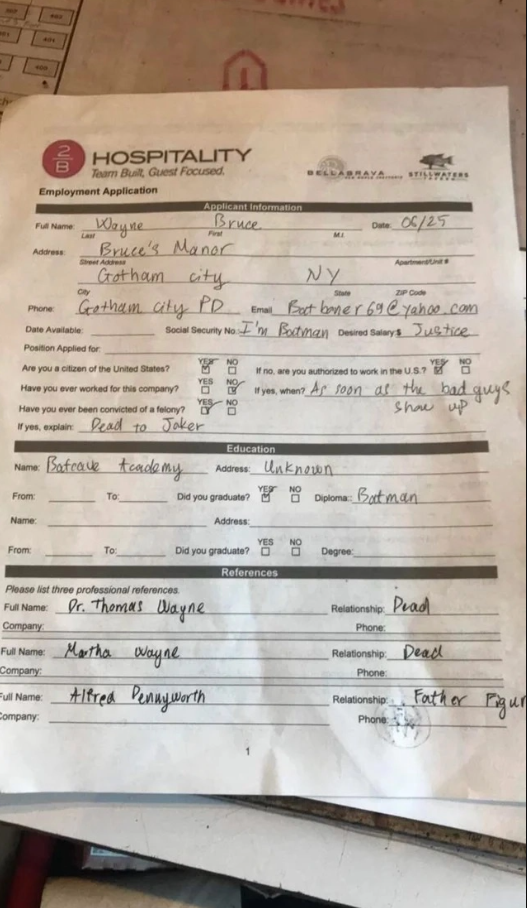 2
B
HOSPITALITY
Team Built, Guest Focused.
BELLAGRAVA STILLWATERS
Employment Application
Applicant Information
Full Name: Wayne Bruce Date: 06/25
Last First M.I.
Address: Bruce's Manor
Street Address Apartment/Unit #
Gotham city NY
City State ZIP Code
Phone: Gotham city PD Email Batboner69@yahoo.com
Date Available: Social Security No.: I'm Batman Desired Salary:$ Justice
Position Applied for:
Are you a citizen of the United States? YES NO If no, are you authorized to work in the U.S.? YES NO
Have you ever worked for this company? YES NO If yes, when? As soon as the bad guys
show up
Have you ever been convicted of a felony? YES NO
If yes, explain: Dead to Joker
Education
Name: Batcave Academy Address: Unknown
From: To: Did you graduate? YES NO Diploma:: Batman
Name: Address:
From: To: Did you graduate? YES NO Degree:
References
Please list three professional references.
Full Name: Dr. Thomas Wayne Relationship: Dead
Company: Phone:
Full Name: Martha Wayne Relationship: Dead
Company: Phone:
Full Name: Alfred Pennyworth Relationship: Father Figur
Company: Phone:
1